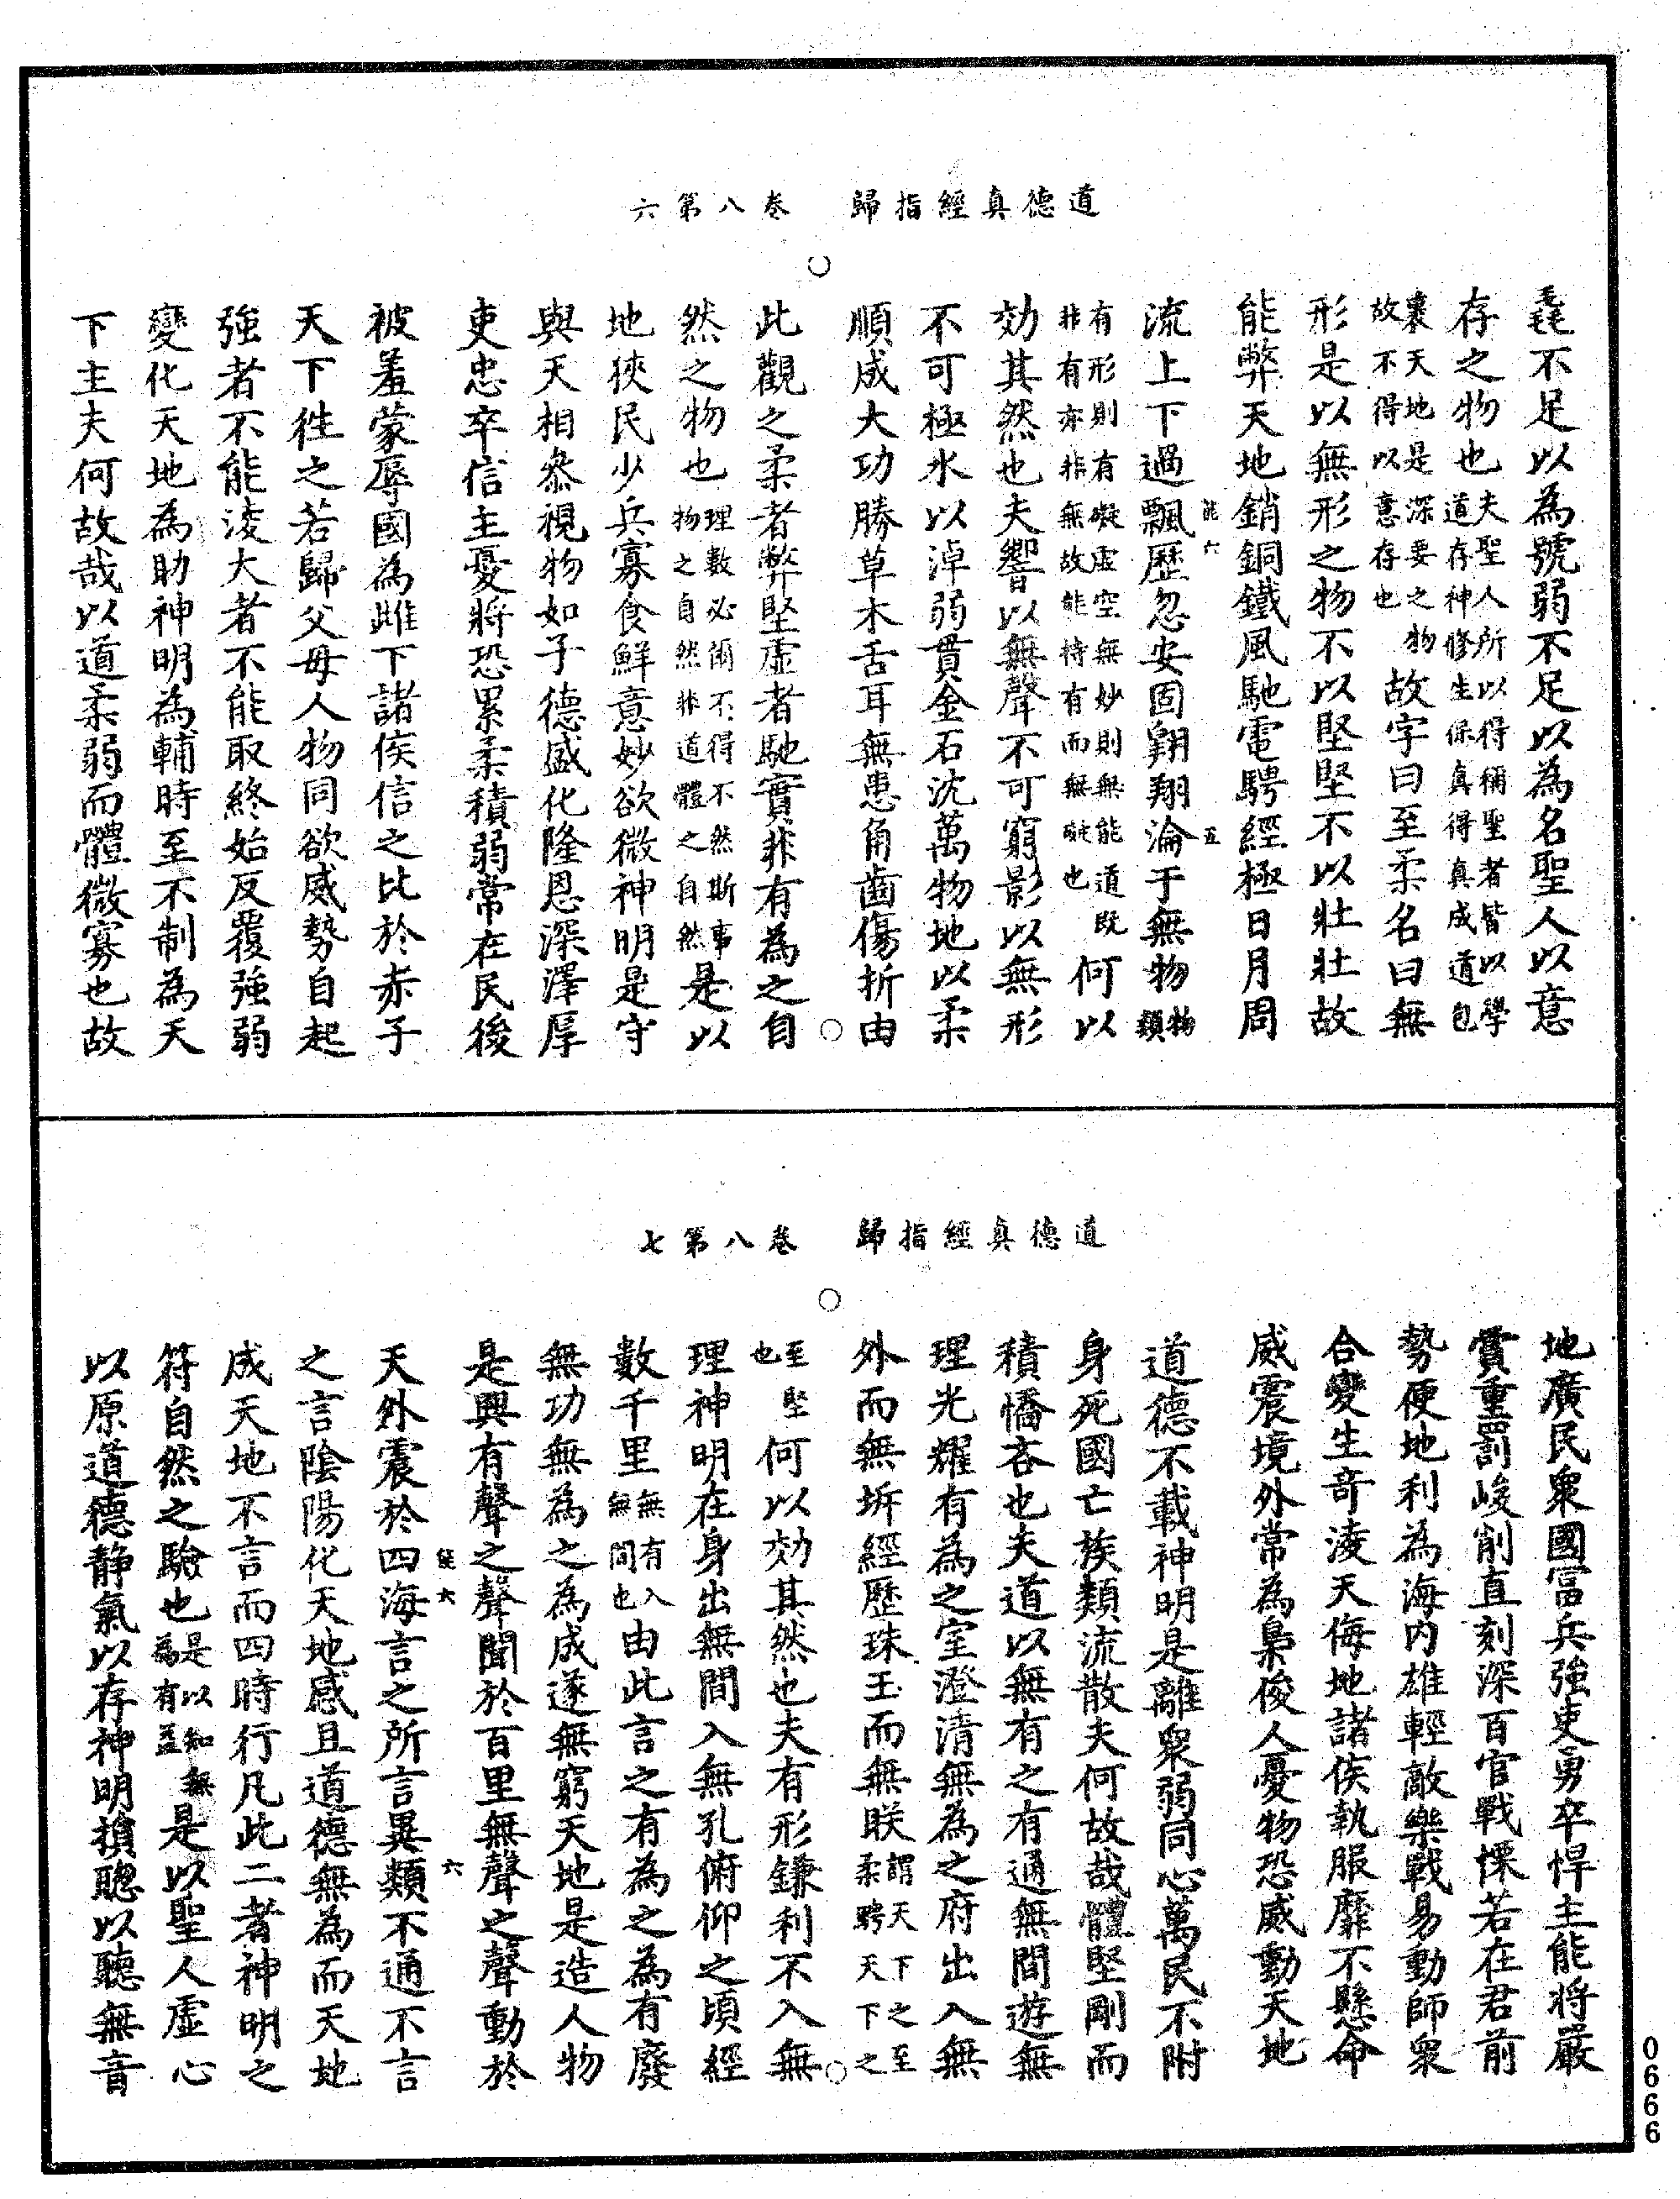 道德真經指歸　卷八第六
毳不足以為號弱不足以為名聖人以意
存之物也夫聖人所以得稱聖者皆以學道存神修生保真得真成道包
裹天地是深要之物故不得以意存也故字曰至柔名曰無
形是以無形之物不以堅堅不以壯壯故
能弊天地銷銅鐵風馳電騁經極日月周
能六　五
流上下過飄歷忽安固翱翔淪于無物物類
有形則有礙虛空無妙則無能道既非有亦非無故能待有而無礙也何以
効其然也夫響以無聲不可窮影以無形
不可極水以淖弱貫金石沈萬物地以柔
順成大功勝草木舌耳無患角齒傷折由
此觀之柔者弊堅虛者馳實非有為之自
然之物也理數必爾不得不然斯事物之自然非道體之自然是以
地狹民少兵寡食鮮意妙欲微神明是守
與天相叅視物如子德盛化隆恩深澤厚
吏忠卒信主憂將恐累柔積弱常在民後
被羞蒙辱國為雌下諸侯信之比於赤子
天下徃之若歸父母人物同欲威勢自起
強者不能淩大者不能取終始反覆強弱
變化天地為助神明為輔時至不制為天
下主夫何故哉以道柔弱而體微寡也故
道德真經指歸　卷八第七
地廣民衆國富兵強吏勇卒悍主能將嚴
賞重罰峻削直刻深百官戰慄若在君前
勢便地利為海內雄輕敵樂戰易動師衆
合變生竒淩天侮地諸侯執服靡不懸命
威震境外常為梟俊人憂物恐威動天地
道德不載神明是離衆弱同心萬民不附
身死國亡族類流散夫何故哉體堅剛而
積憍吝也夫道以無有之有通無間遊無
理光耀有為之室澄清無為之府出入無
外而無圻經歷珠玉而無朕謂天下之至柔騁天下之
至堅也何以効其然也夫有形鎌利不入無
理神明在身出無間入無孔俯仰之頃經
數千里無有入無間也由此言之有為之為有廢
無功無為之為成遂無窮天地是造人物
是興有聲之聲聞於百里無聲之聲動於
能六　六
天外震於四海言之所言異類不通不言
之言陰陽化天地感且道德無為而天地
成天地不言而四時行凡此二者神明之
符自然之驗也是以知無為有益是以聖人虛心
以原道德靜氣以存神明損聰以聽無音
0666